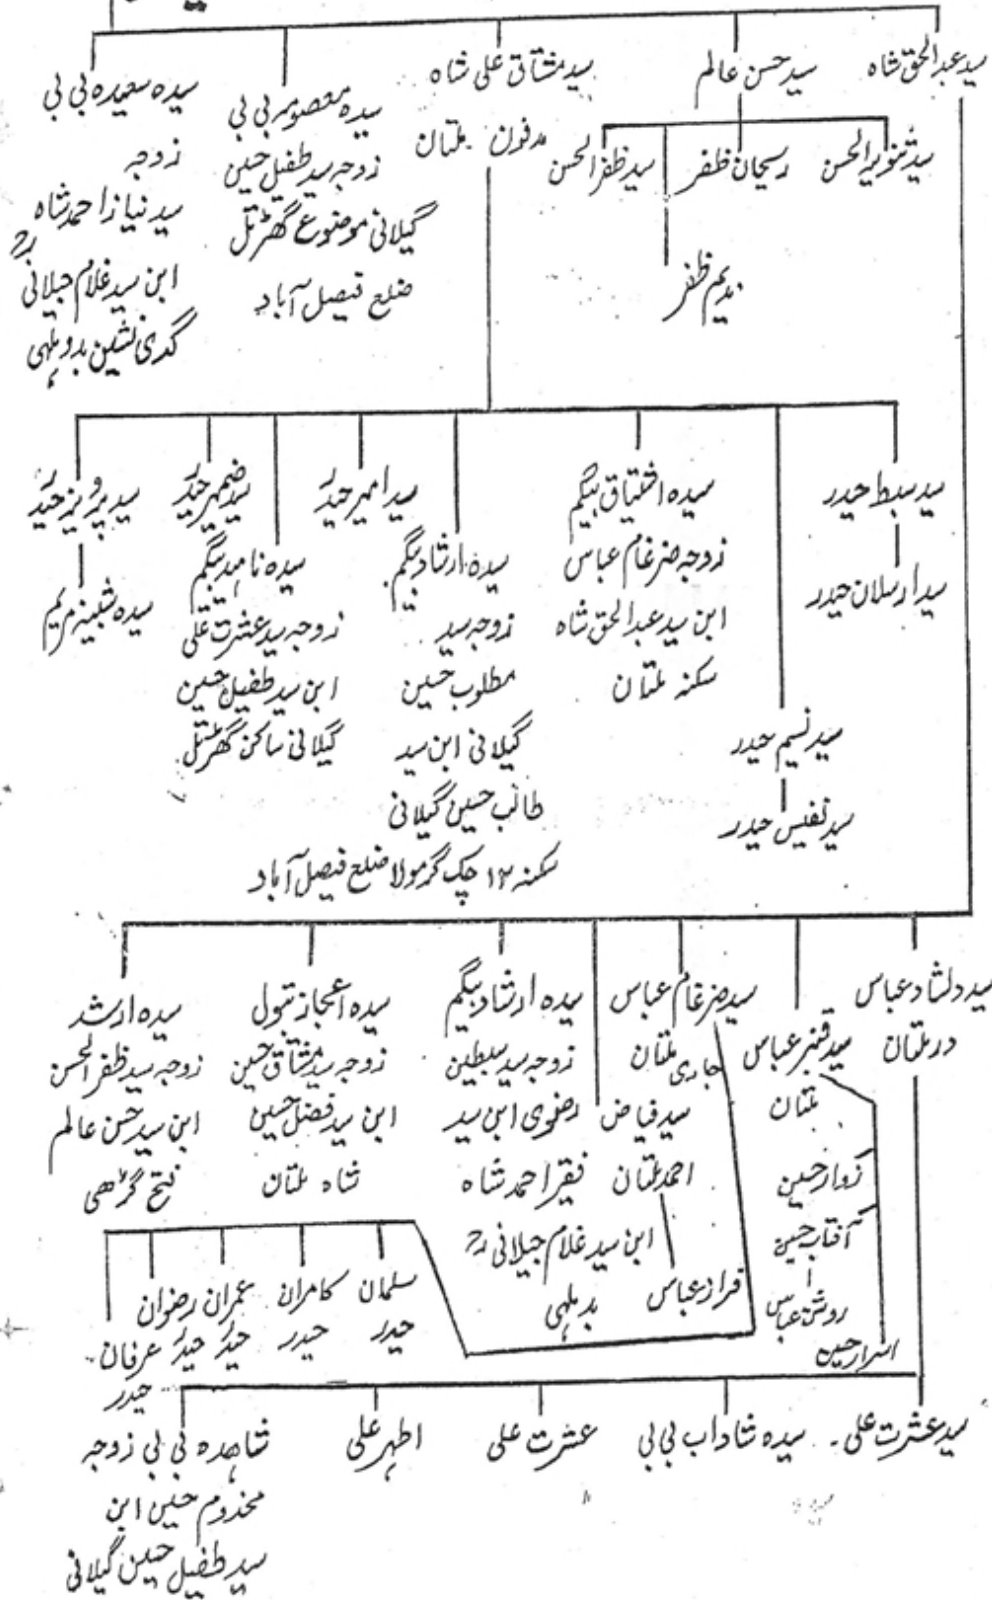 سید عبدالحق شاہ
سید حسن عالم
سید مشتاق علی شاہ
مدفون ملتان
سیدہ معصومہ بی بی
زوجہ سید طفیل حسین
گیلانی موضوع گھڑتل
ضلع فیصل آباد
سیدہ سعیدہ بی بی
زوجہ
سید نیاز احمد شاہ
ابن سید غلام جیلانیؒ
گدی نشین بدوملہی
سید تنویر الحسن
ریحان ظفر
سید ظفر الحسن
ندیم ظفر
سید سبط حیدر
سید ارسلان حیدر
سید نسیم حیدر
سید نفیس حیدر
سیدہ اشتیاق بیگم
زوجہ ضرغام عباس
ابن سید عبدالحق شاہ
سکنہ ملتان
سیدہ ارشاد بیگم
زوجہ سید
مطلوب حسین
گیلانی ابن سید
طالب حسین گیلانی
سکنہ ۱۲ چک گرمولا ضلع فیصل آباد
سید امیر حیدر
سیدہ ناہید بیگم
زوجہ سید عشرت علی
ابن سید طفیل حسین
گیلانی ساکن گھڑتل
سید ضمیر حیدر
سید پرویز حیدر
سیدہ شبینہ مریم
سید دلشاد عباس
در ملتان
سید قنبر عباس
ملتان
زوار حسین
آفتاب حسین
روشن عباس
اسرار حسین
سید ضرغام عباس
جاری ملتان
سید فیاض
احمد ملتان
فراز عباس
سیدہ ارشاد بیگم
زوجہ سید سبطین
رضوی ابن سید
فقیر احمد شاہ
ابن سید غلام جیلانیؒ
بدملہی
سیدہ اعجاز بتول
زوجہ سید مشتاق حسین
ابن سید فضل حسین
شاہ ملتان
سیدہ ارشد
زوجہ سید ظفر الحسن
ابن سید حسن عالم
فتح گڑھی
سلمان
حیدر
کامران
حیدر
عمران
حیدر
رضوان
حیدر
عرفان
حیدر
سید عشرت علی۔
سیدہ شاداب بی بی
عشرت علی
اطہر علی
شاہدہ بی بی زوجہ
مخدوم حسین ابن
سید طفیل حسین گیلانی